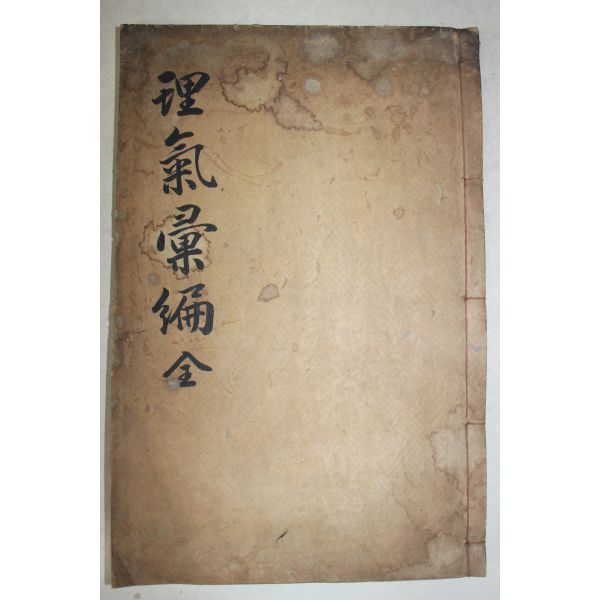 理氣彙編 全